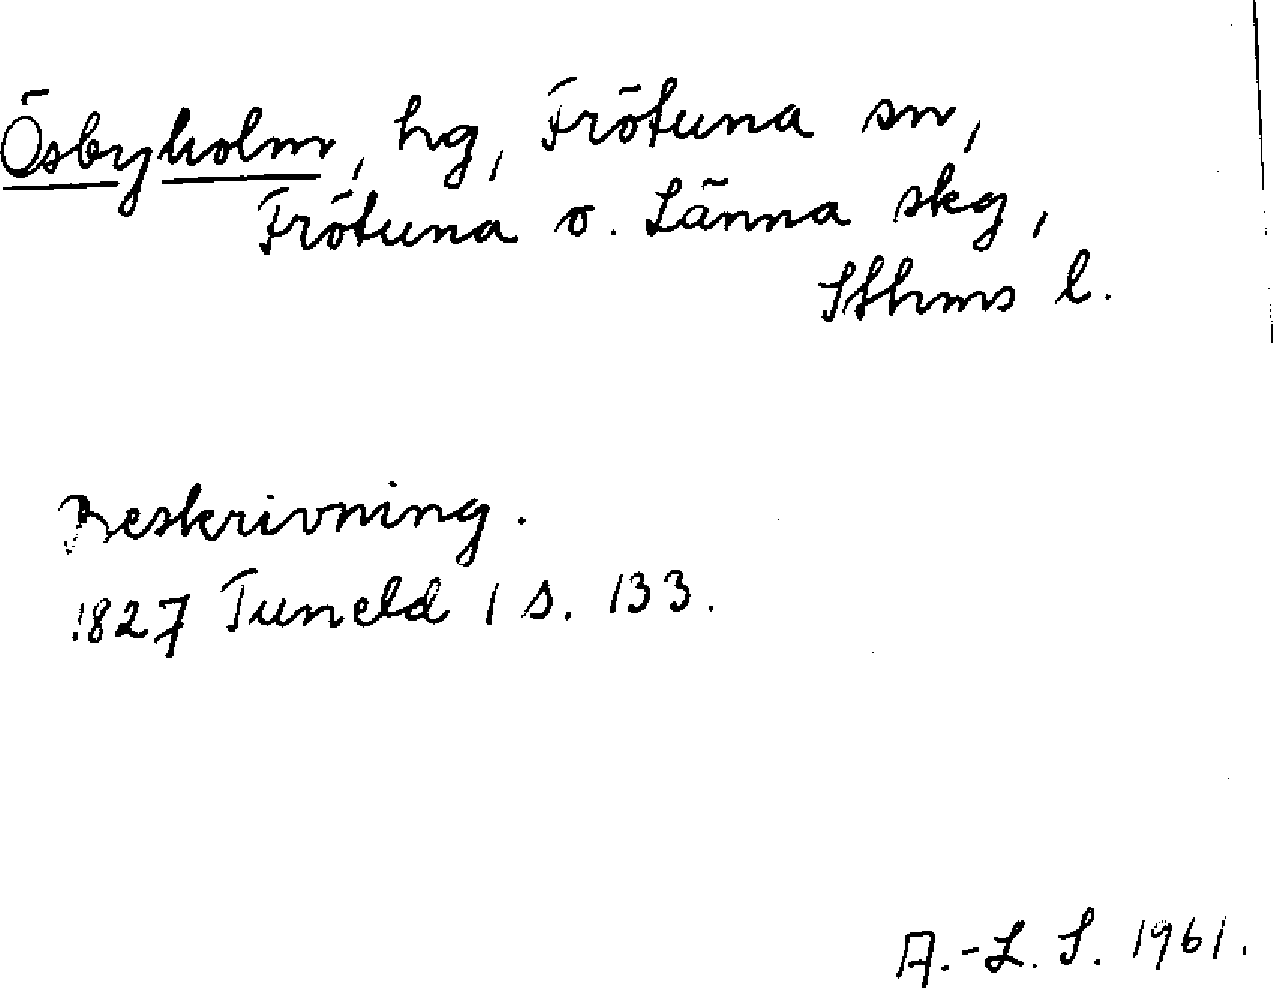 Ösbyholm, hg, Frötuna sn,
Frötuna o. Länna skg,
Sthms l.
Beskrivning.
1827 Tuneld 1 s. 133.
A.-L. S. 1961.